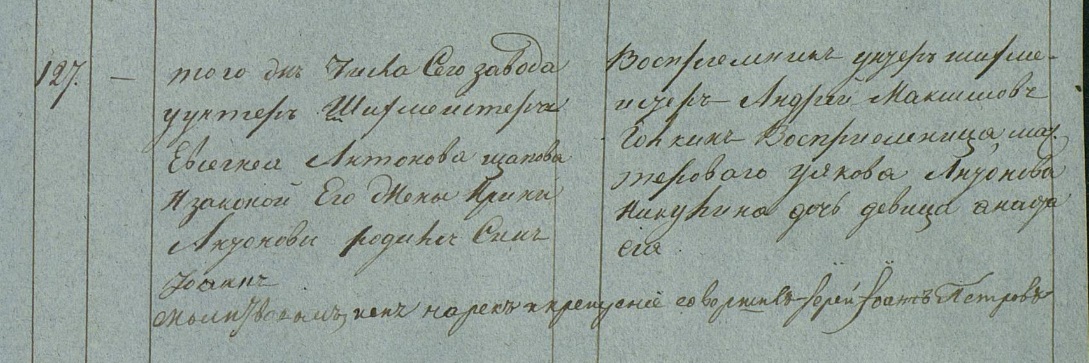 127. — того дня Числа Сего завода
унтер Шихмейстера
Евгения Антонова щапова
И законой Его Жены Ирины
Антоновы родился Сынъ
Иоаннъ
Восприемникъ унтеръ шихме-
йстеръ Андрей Максимовъ
Восприемница мас
тероваго Антонова
Никулина дочь девица анафа
сія
молитвовалъ, имя нарекъ и крещение совершилъ Іерей Іоаннъ Петровъ